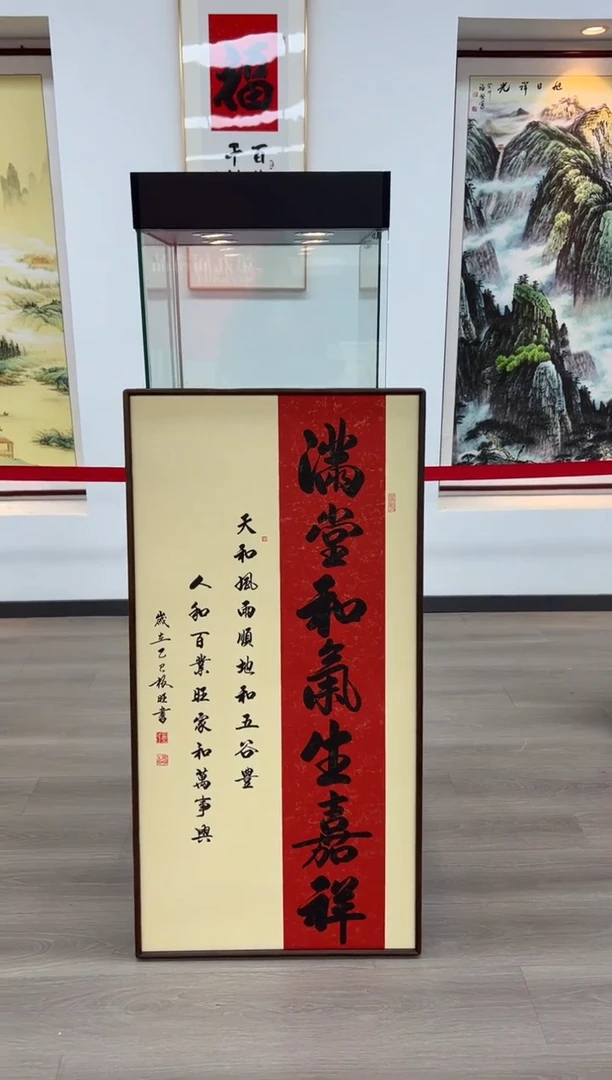 满堂和氣生嘉祥
天和風雨順地和五谷豐
人和百業旺家和萬事興
歲在乙巳振旺書
福
旭日祥光